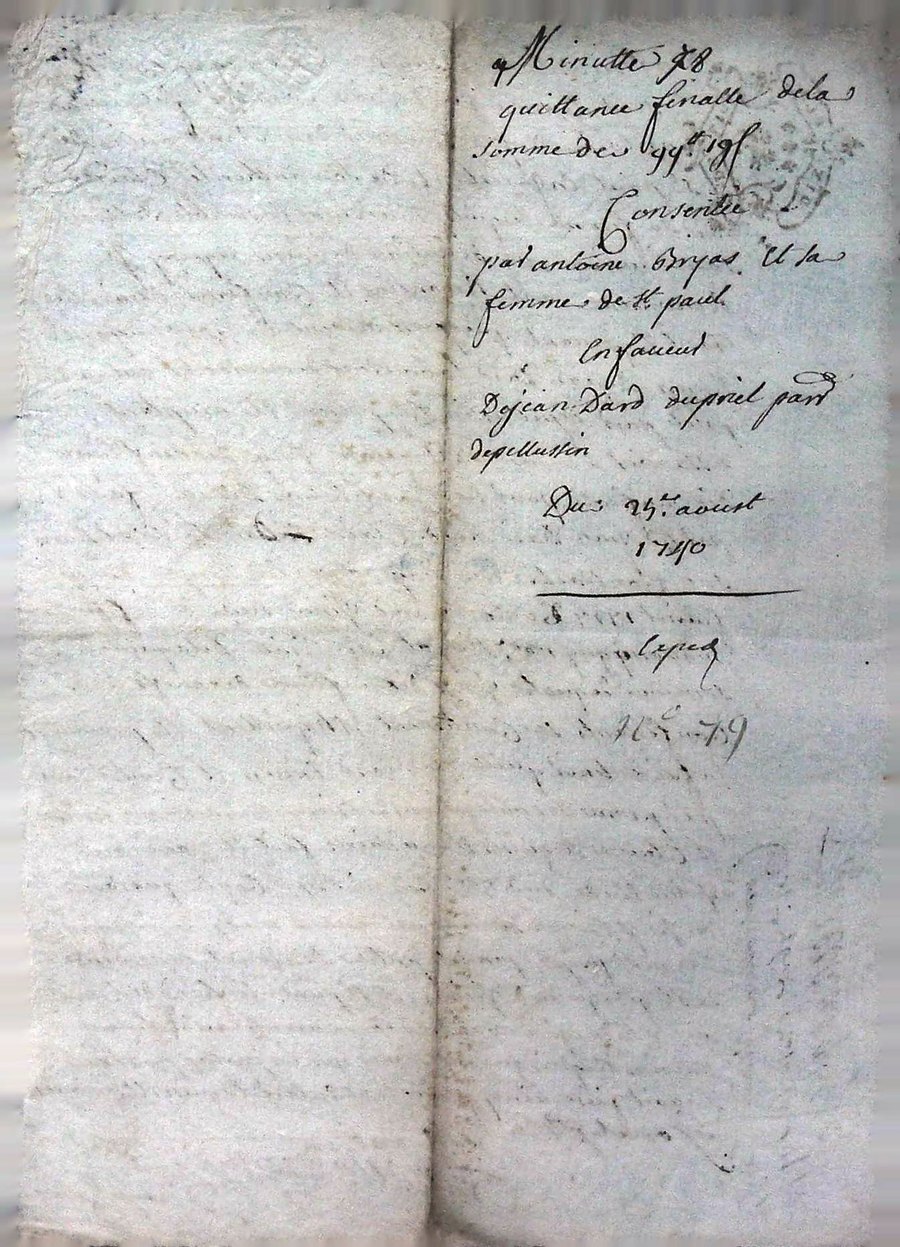 Minutte 78
quittance finalle dela
somme de 99tt 19s
Consentie
par antoine Bryas Et sa
femme de st paul
En faveur
De jean Dard du priel parr
de pellussin
Du 25e aoust
1740
N° 79